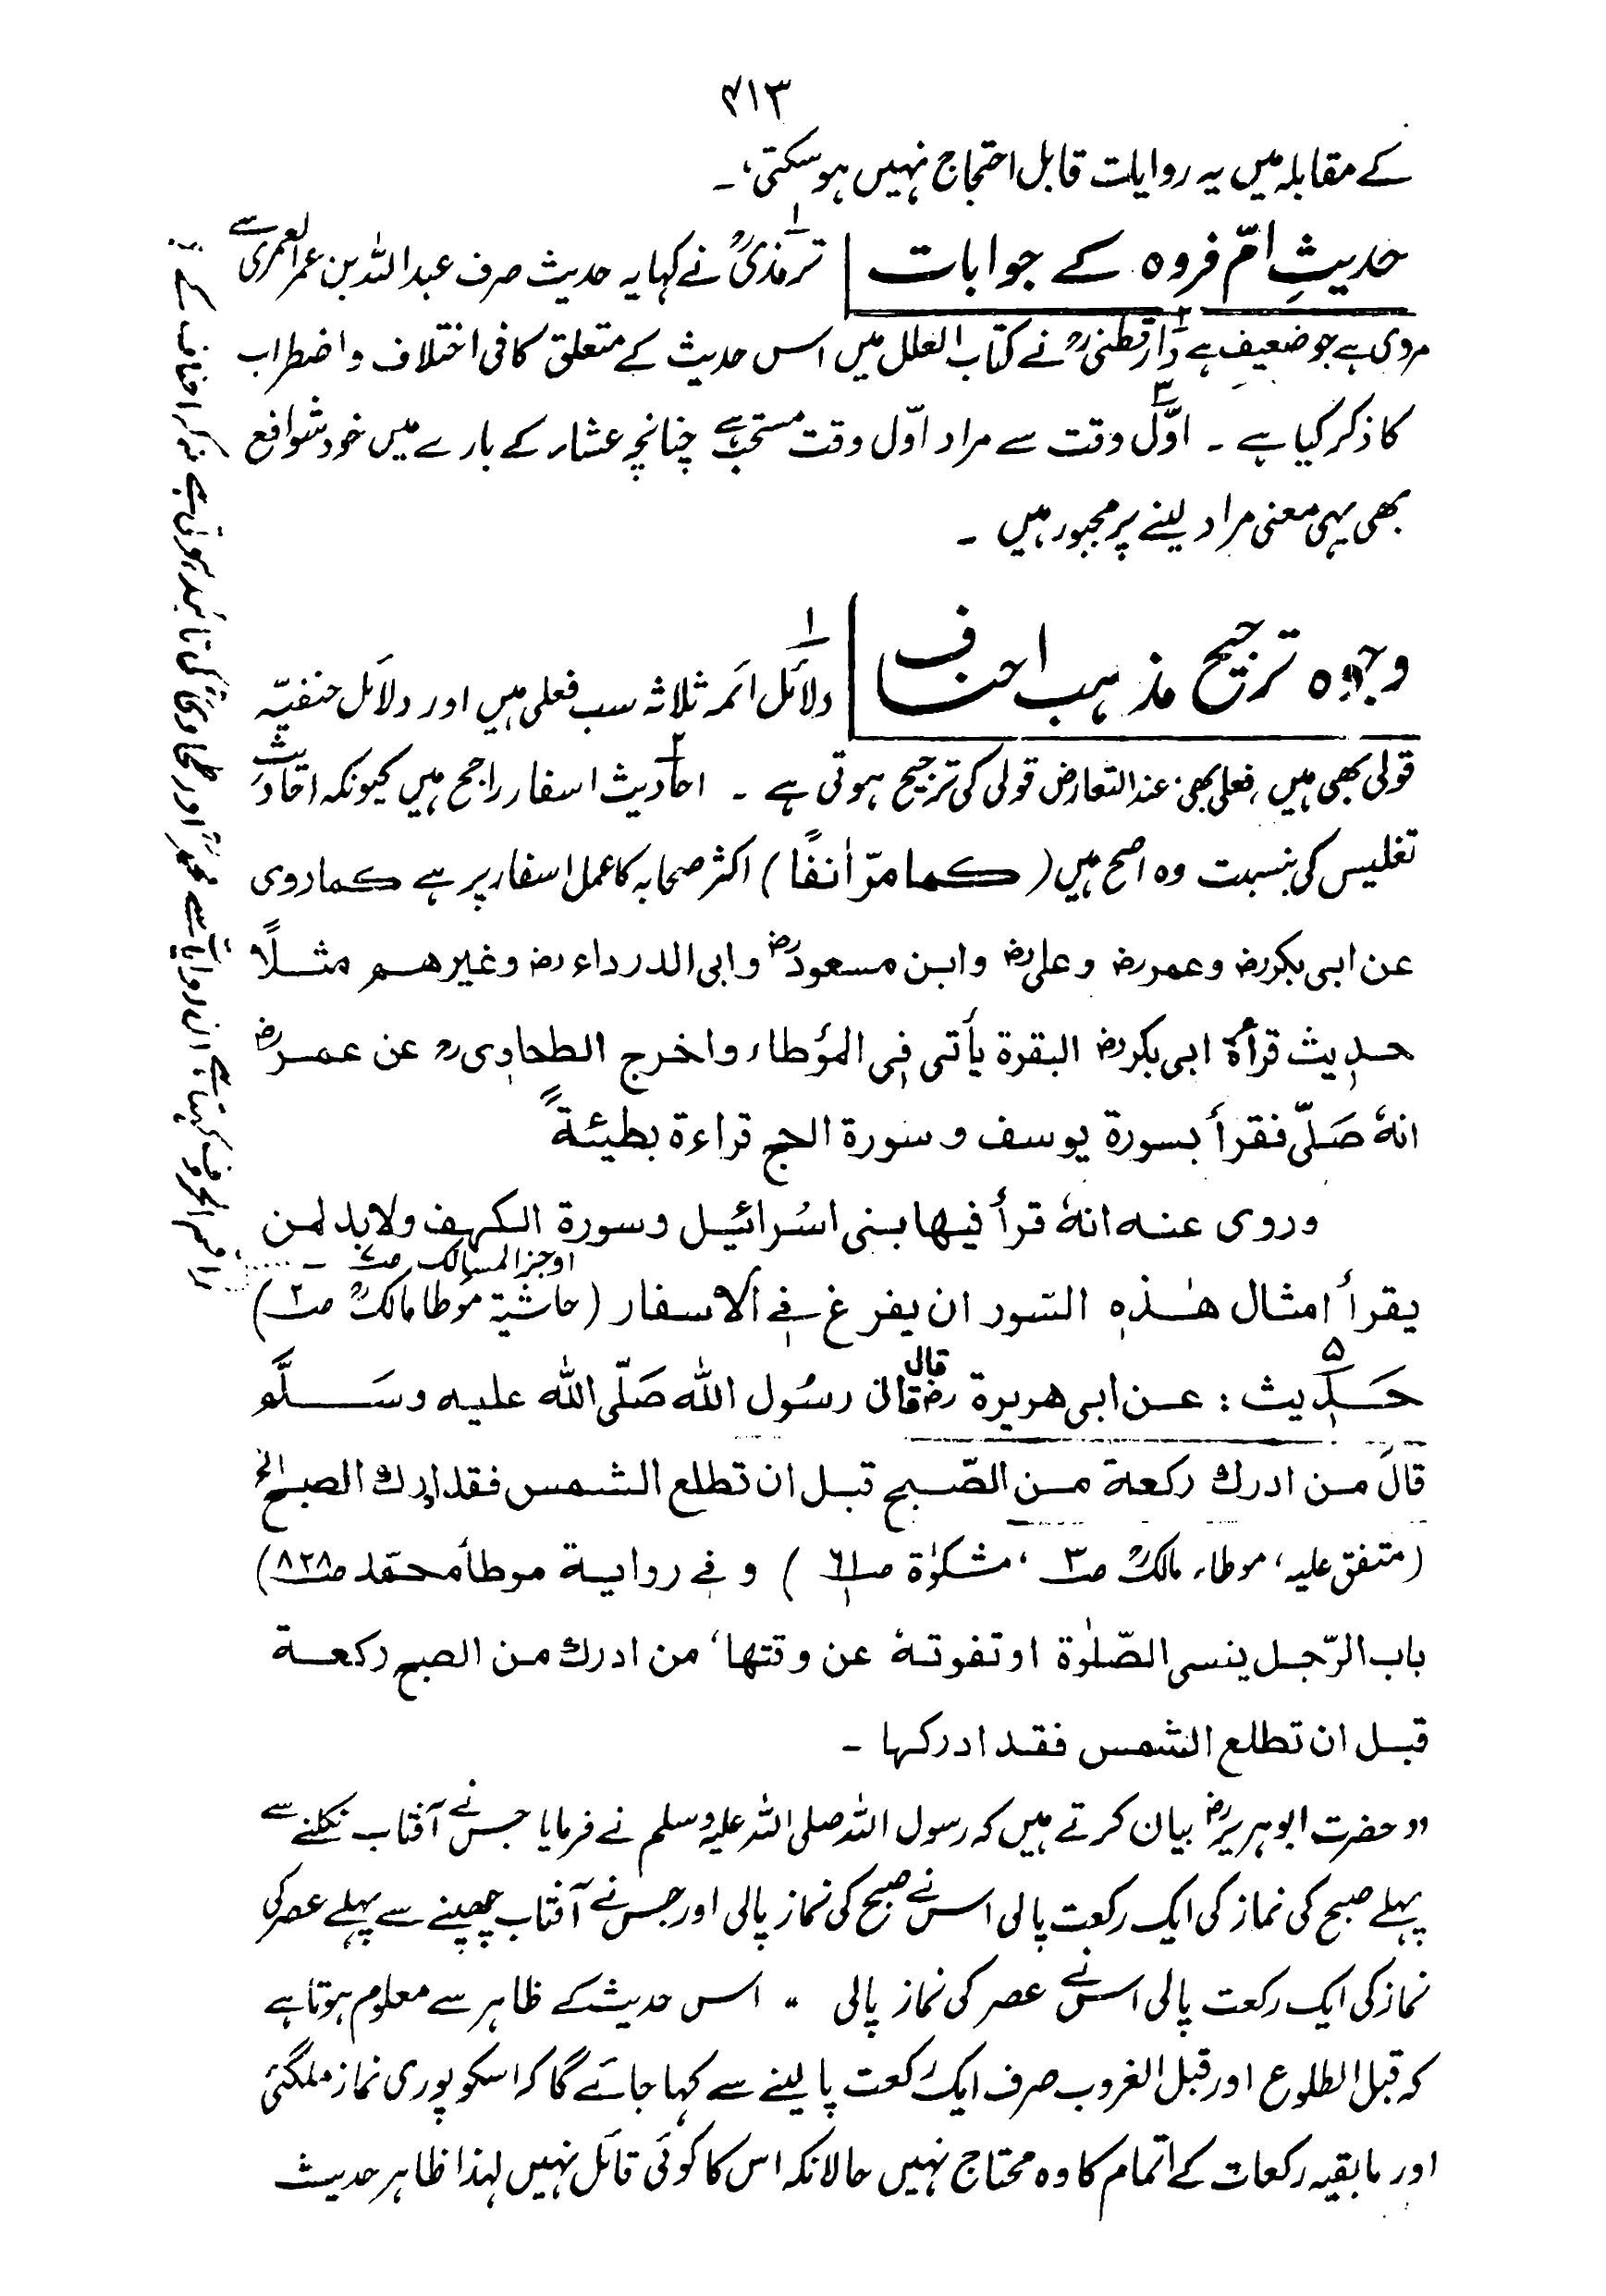 ۴۱۳
کے مقابلہ میں یہ روایات قابل احتجاج نہیں ہوسکتی،۔
حدیثِ امّ فروہ کے جوابات | ۱ ترمذیؒ نے کہا یہ حدیث صرف عبداللہ بن عمر العمری سے
مروی ہے جو ضعیف ہے ۲ دارقطنیؒ نے کتاب العلل میں اس حدیث کے متعلق کافی اختلاف و اضطراب
کا ذکر کیا ہے ۔ ۳ اوّل وقت سے مراد اوّل وقت مستحب ہے چنانچہ عشاء کے بارے میں خود شوافع
بھی یہی معنی مراد لینے پر مجبور ہیں ۔
وجوہ ترجیح مذہب احناف | ۱ دلائل ائمہ ثلاثہ سب فعلی ہیں اور دلائل حنفیّہ
قولی بھی ہیں، فعلی بھی، عند التعارض قولی کی ترجیح ہوتی ہے ۔ ۲ احادیث اسفار راجح ہیں کیونکہ احادیث
تغلیس کی بنسبت وہ اصح ہیں (کما مرّ اٰنفًا) اکثر صحابہ کا عمل اسفار پر ہے کما روی
عن ابی بکرؓ وعمرؓ وعلیؓ وابن مسعودؓ وابی الدرداءؓ وغیرھم مثلًا
حدیث قرأۃ ابی بکرؓ البقرۃ یأتی فی المؤطاء واخرج الطحاویؒ عن عمرؓ
انہٗ صَلّی فقرأ بسورۃ یوسف وسورۃ الحج قراءۃ بطیئۃً
وروی عنہ انہٗ قرأ فیھا بنی اسرائیل وسورۃ الکہف ولابد لمن
یقرأ امثال ھٰذہ السّور ان یفرغ فی الاسفار (حاشیۃ موطا مالکؒ ص۲)
اوجز المسالک ص۷ ۔
۵ حَدِیث : عن ابی ھریرۃ رض قال قال رسُول اللہ صَلّی اللہ علیہ وسَلَّم
قال من ادرک رکعۃ من الصّبح قبل ان تطلع الشمس فقد ادرک الصبح الخ
(متفق علیہ، موطاء مالکؒ ص۳، مشکوٰۃ ص۶۱) وفی روایۃ موطأ محمّد ص۸۲۸)
باب الرّجل ینسی الصّلٰوۃ او تفوتہٗ عن وقتھا، من ادرک من الصبح رکعۃ
قبل ان تطلع الشمس فقد ادرکہا ۔
” حضرت ابو ہریرہؓ بیان کرتے ہیں کہ رسول اللہ صلی اللہ علیہ وسلم نے فرمایا جس نے آفتاب نکلنے سے
پہلے صبح کی نماز کی ایک رکعت پالی اس نے صبح کی نماز پالی اور جس نے آفتاب چھپنے سے پہلے عصر کی
نماز کی ایک رکعت پالی اس نے عصر کی نماز پالی ” اس حدیث کے ظاہر سے معلوم ہوتا ہے
کہ قبل الطلوع اور قبل الغروب صرف ایک رکعت پالینے سے کہا جائے گا کہ اسکو پوری نماز ملگئی
اور مابقیہ رکعات کے اتمام کا وہ محتاج نہیں حالانکہ اس کا کوئی قائل نہیں لہذا ظاہر حدیث
راقم الحروف کہتا ہے ان روایات سے محمدؒ اور طحاویؒ کی تائید ہوتی ہے نہ کہ احناف کے